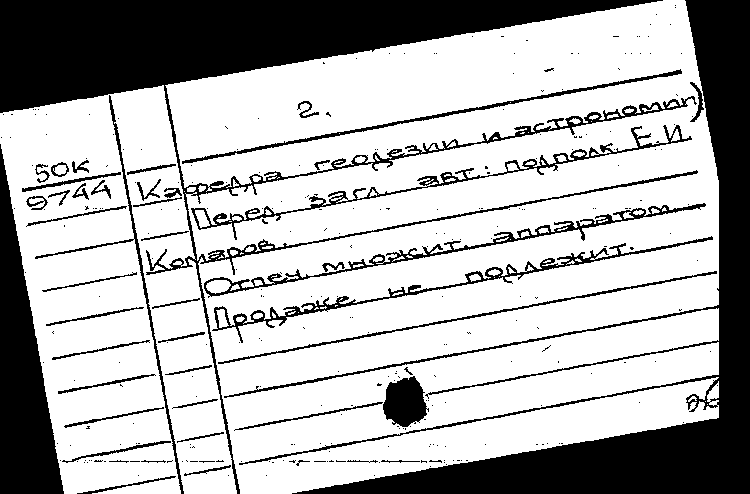 2.
50К
9744
Кафедра геодезии и астрономии)
Перед загл. авт.: подполк. Е.И.
Комаров.
Отпеч. множит. аппаратом
Продаже не подлежит.